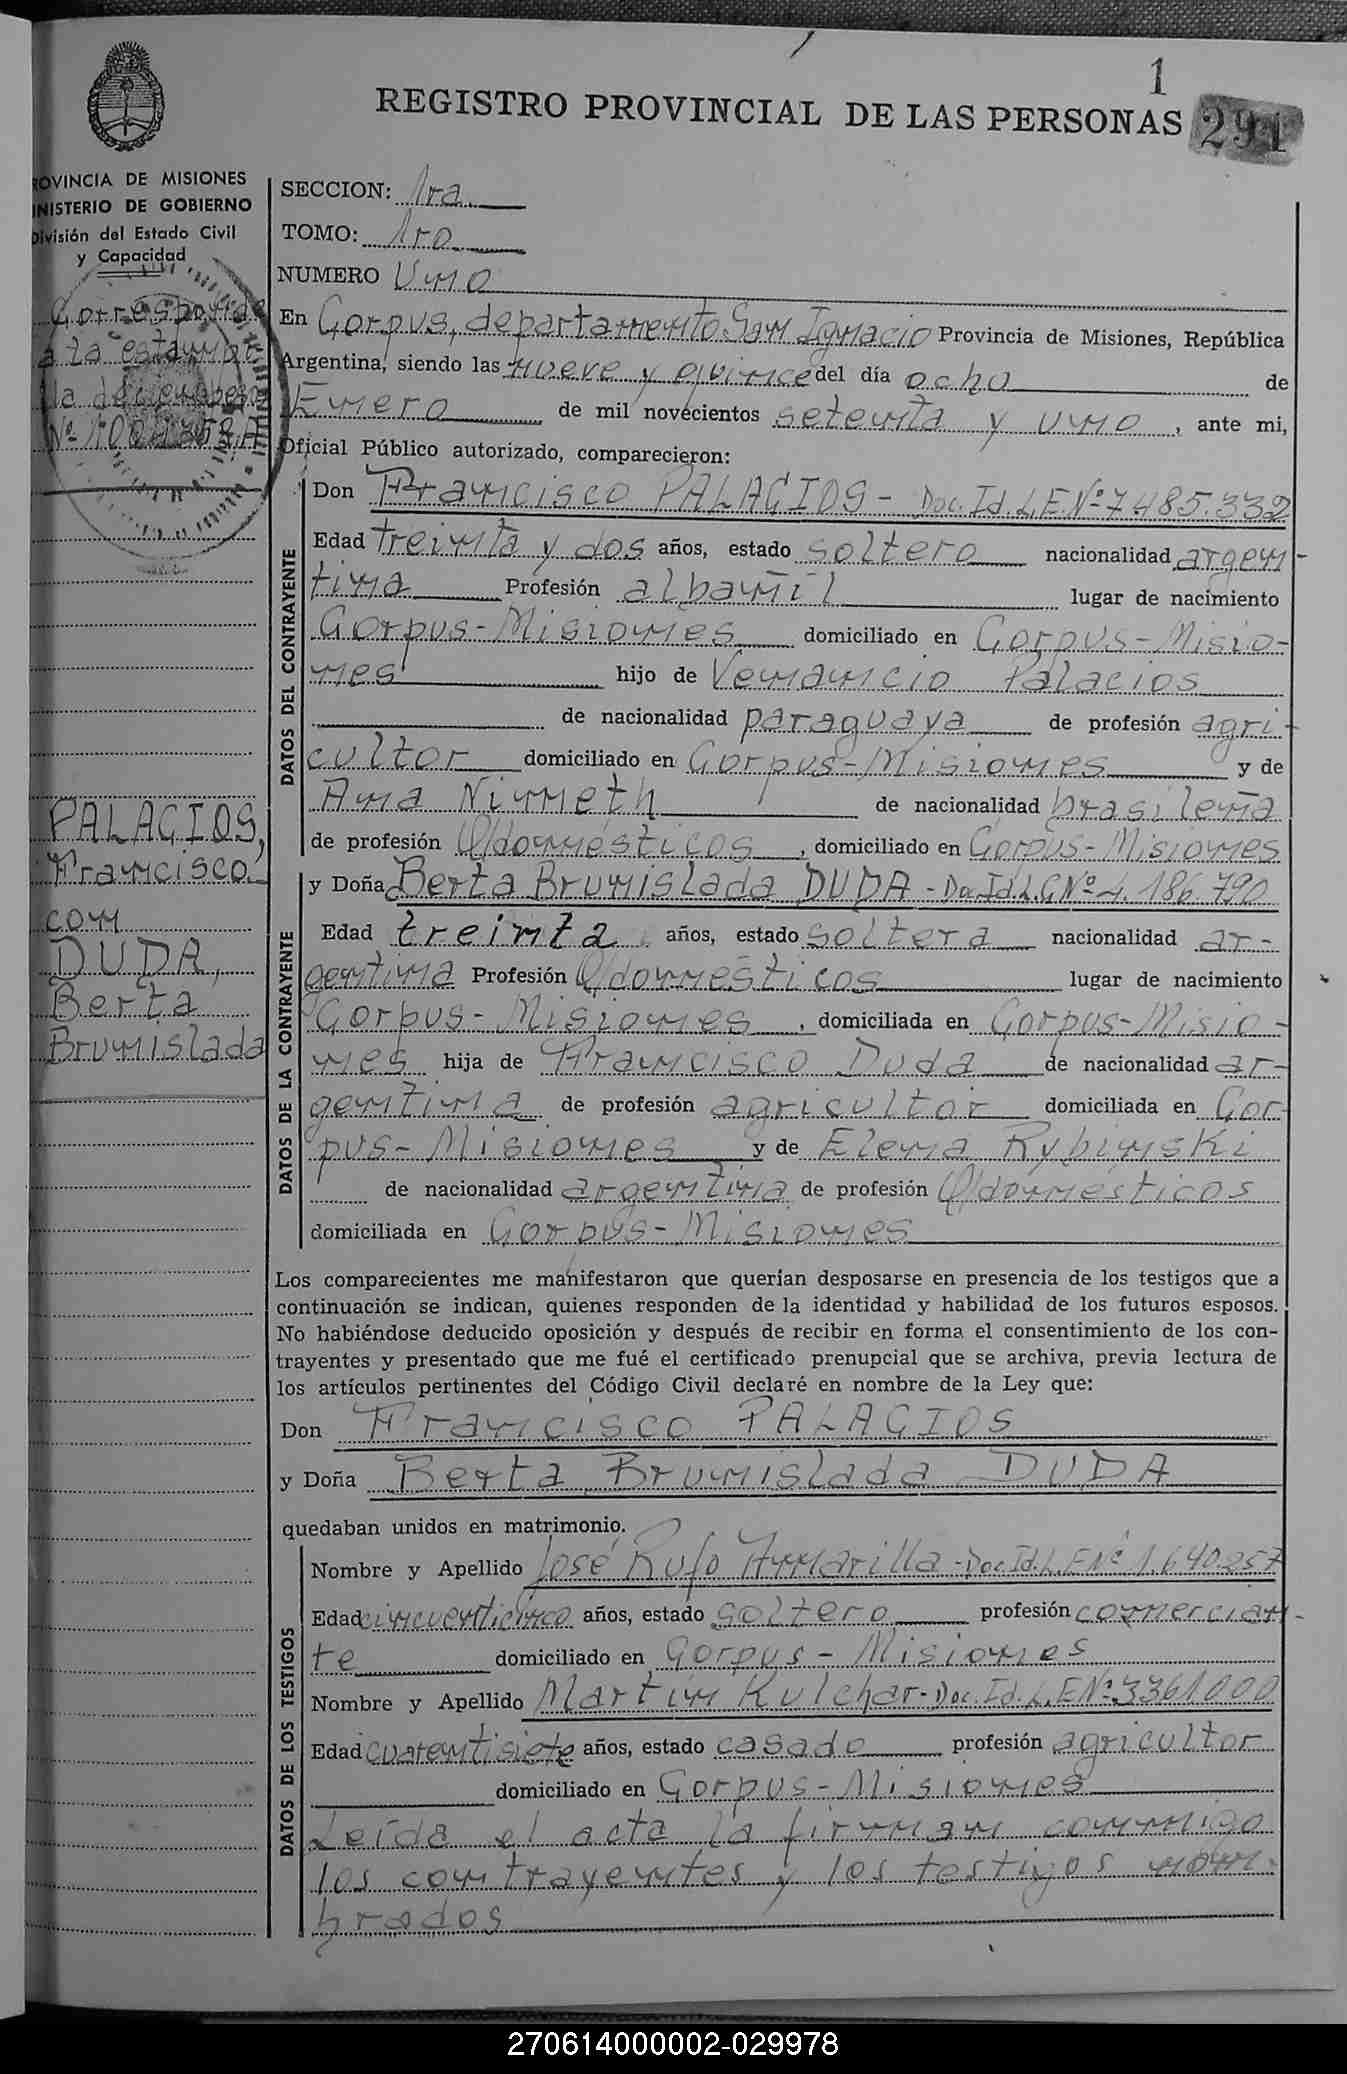 1
REGISTRO PROVINCIAL DE LAS PERSONAS 291
PROVINCIA DE MISIONES
MINISTERIO DE GOBIERNO
División del Estado Civil
y Capacidad
Corresponde
a la estampi
lla
Nº
PALACIOS,
Francisco
con
DUDA,
Berta
Brunislada
SECCION: 1ra.
TOMO: 1ro
NUMERO Uno
En Corpus, departamento San Ignacio Provincia de Misiones, República
Argentina, siendo las nueve y quince del día ocho de
Enero de mil novecientos setenta y uno, ante mi,
Oficial Público autorizado, comparecieron:
DATOS DEL CONTRAYENTE
Don Francisco PALACIOS - Doc. Id. L.E. Nº 7.485.332
Edad treinta y dos años, estado soltero nacionalidad argen-
tina Profesión albañil lugar de nacimiento
Corpus-Misiones domiciliado en Corpus-Misio-
nes hijo de Venancio Palacios
de nacionalidad paraguaya de profesión agri-
cultor domiciliado en Corpus-Misiones y de
Ana Nimeth de nacionalidad brasileña
de profesión Q/domésticos, domiciliado en Corpus-Misiones
DATOS DE LA CONTRAYENTE
y Doña Berta Brunislada DUDA - Doc. Id. L.C. Nº 4.186.790
Edad treinta años, estado soltera nacionalidad ar-
gentina Profesión Q/domésticos lugar de nacimiento
Corpus-Misiones, domiciliada en Corpus-Misio-
nes hija de Francisco Duda de nacionalidad ar-
gentina de profesión agricultor domiciliada en Cor-
pus-Misiones y de Elena Rybinski
de nacionalidad argentina de profesión Q/domésticos
domiciliada en Corpus-Misiones
Los comparecientes me manifestaron que querían desposarse en presencia de los testigos que a
continuación se indican, quienes responden de la identidad y habilidad de los futuros esposos.
No habiéndose deducido oposición y después de recibir en forma el consentimiento de los con-
trayentes y presentado que me fué el certificado prenupcial que se archiva, previa lectura de
los artículos pertinentes del Código Civil declaré en nombre de la Ley que:
Don Francisco PALACIOS
y Doña Berta Brunislada DUDA
quedaban unidos en matrimonio.
DATOS DE LOS TESTIGOS
Nombre y Apellido José Rufo Amarilla - Doc. Id. L.E. Nº 1.640.257
Edad cincuenticinco años, estado soltero profesión comercian-
te domiciliado en Corpus - Misiones
Nombre y Apellido Martin Kulchar - Doc. Id. L.E. Nº 3361000
Edad cuarentisiete años, estado casado profesión agricultor
domiciliado en Corpus-Misiones
Leída el acta la firman conmigo
los contrayentes y los testigos nom-
brados
270614000002-029978